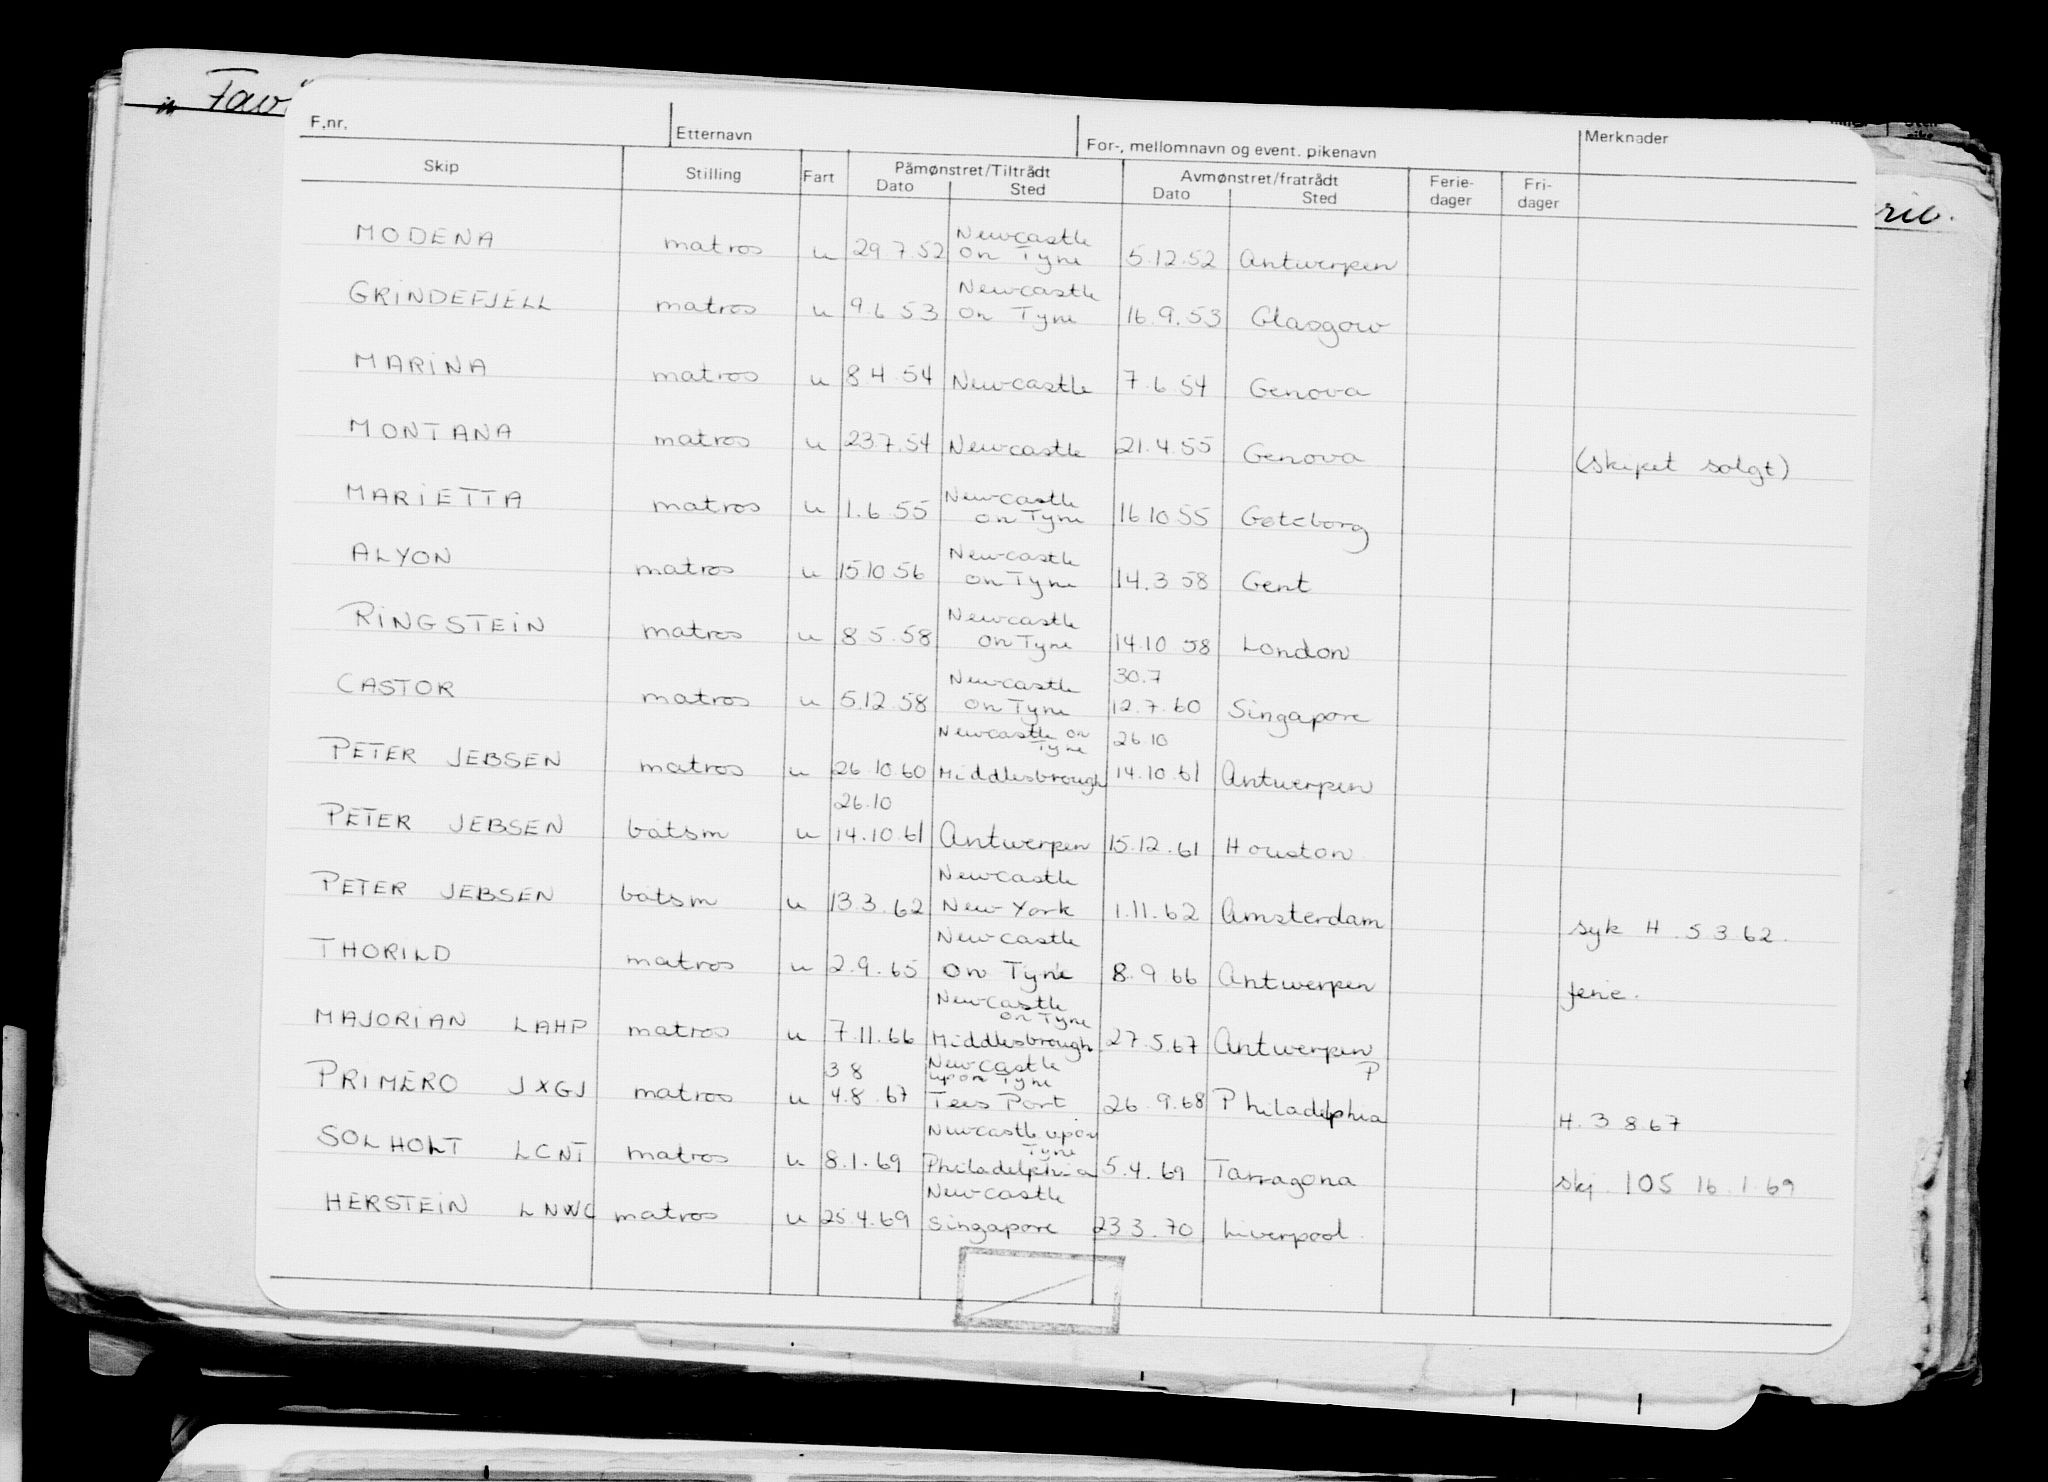 F.nr. Etternavn For-, mellomnavn og event. pikenavn Merknader
Skip Stilling Fart Påmønstret/Tiltrådt Avmønstret/fratrådt Ferie- Fri-
Dato Sted Dato Sted dager dager
Newcastle
MODENA matros u 29.7.52 on Tyne 5.12.52 Antwerpen
Newcastle
GRINDEFJELL matros u 9.6 53 on Tyne 16.9.53 Glasgow
MARINA matros u 8.4.54 Newcastle 7.6.54 Genova
MONTANA matros u 23.7.54 Newcastle 21.4.55 Genova (skipet solgt)
Newcastle
MARIETTA matros u 1.6.55 on Tyne 16.10.55 Gøteborg
Newcastle
ALYON matros u 15.10 56 on Tyne 14.3 58 Gent
Newcastle
RINGSTEIN matros u 8.5.58 on Tyne 14.10 58 London
Newcastle 30.7
CASTOR matros u 5.12.58 on Tyne 12.7.60 Singapore
Newcastle on Tyne 26.10
PETER JEBSEN matros u 26.10 60 Middlesbrough 14.10.61 Antwerpen
26.10
PETER JEBSEN båtsm u 14.10.61 Antwerpen 15.12.61 Houston
Newcastle
PETER JEBSEN båtsm u 13.3.62 New York 1.11.62 Amsterdam syk H. 5 3 62.
Newcastle
THORILD matros u 2.9.65 on Tyne 8.9 66 Antwerpen ferie.
Newcastle on Tyne
MAJORIAN LAHP matros u 7.11.66 Middlesbrough 27.5.67 Antwerpen
3 8 Newcastle upon Tyne P
PRIMERO JXGJ matros u 4.8.67 Tees Port 26.9.68 Philadelphia H. 3 8.67
Newcastle upon Tyne
SOLHOLT LCNT matros u 8.1.69 Philadelphia 5.4.69 Tarragona skj. 105 16.1.69
Newcastle
HERSTEIN LNWC matros u 25.4.69 Singapore 23 3.70 Liverpool.